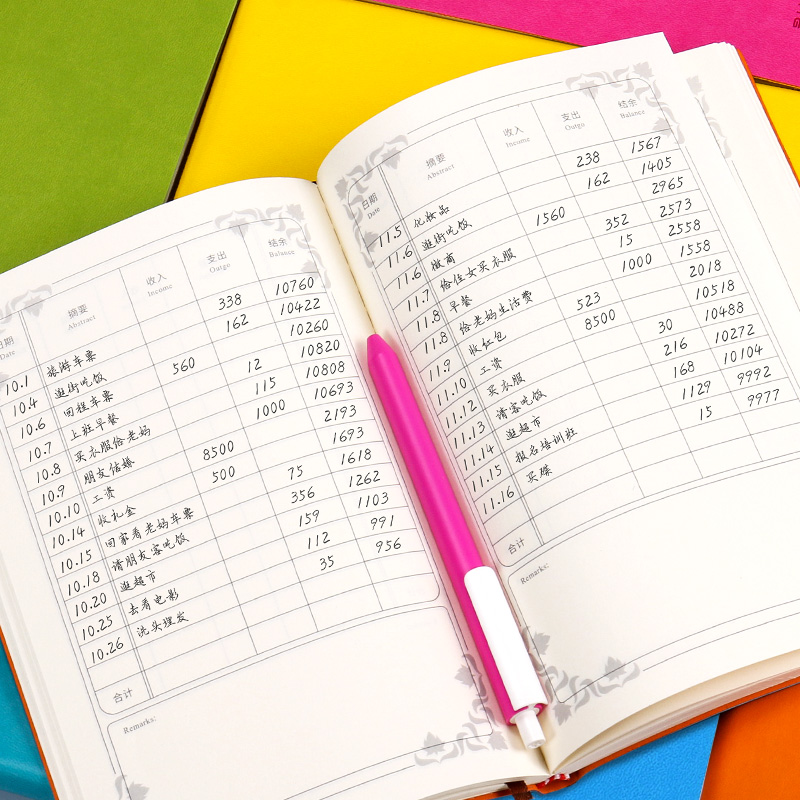 日期 摘要 收入 支出 结余
Date Abstract Income Outgo Balance
10.1 旅游车票 338 10760
10.4 逛街吃饭 162 10422
10.6 回程车票 560 10260
10.7 上班早餐 12 10820
10.8 买衣服给老妈 115 10808
10.9 朋友结婚 1000 10693
10.10 工资 8500 2193
10.14 收礼金 500 1693
10.15 回家看老妈车票 75 1618
10.18 请朋友客吃饭 356 1262
10.20 逛超市 159 1103
10.25 去看电影 112 991
10.26 洗头理发 35 956
合计
Remarks:
日期 摘要 收入 支出 结余
Date Abstract Income Outgo Balance
11.5 化妆品 238 1567
11.6 逛街吃饭 162 1405
11.6 微商 1560 2965
11.7 给侄女买衣服 352 2573
11.8 早餐 15 2558
11.8 给老妈生活费 1000 1558
11.9 收红包 523 2018
11.10 工资 8500 10518
11.12 买衣服 30 10488
11.13 请客吃饭 216 10272
11.14 逛超市 168 10104
11.15 报名培训班 1129 9992
11.16 买碟 15 9977
合计
Remarks: